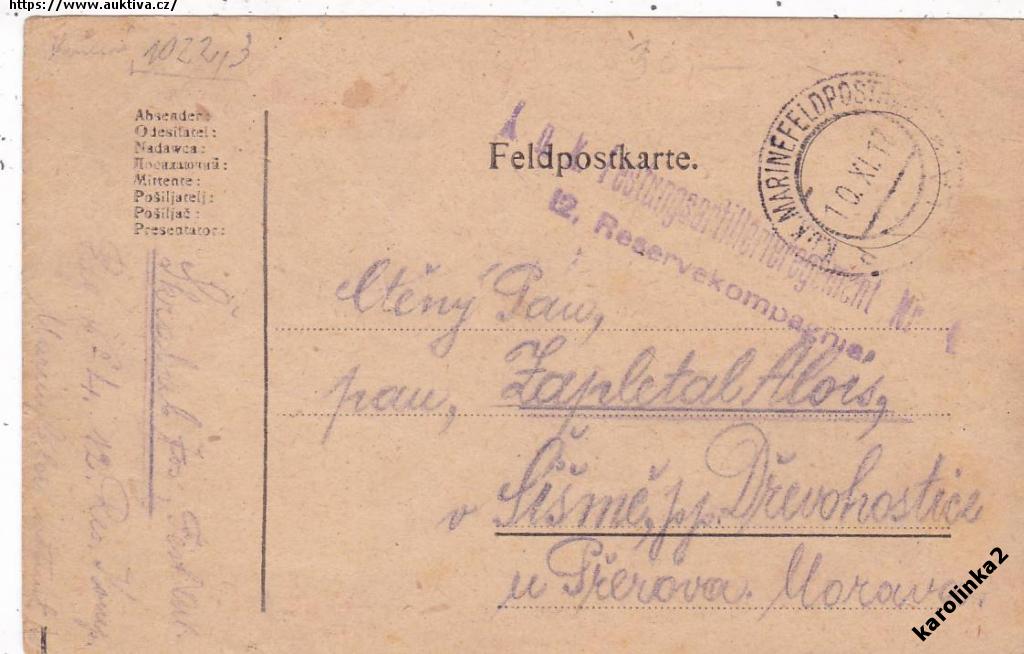 https://www.auktiva.cz/
1022,3
30,—
Absender:
Odesílatel:
Nadawca:
Посилаючий:
Mittente:
Pošiljatelj:
Pošiljač:
Presentator:
Feldpostkarte.
K. u. k. Festungsartillerieregiment Nr.
12. Reservekompagnie.
K.u.K. MARINEFELDPOST
10. XI. 17
Ctěný Pan,
pan, Zapletal Alois,
v Šišmě, pp. Dřevohostice
u Přerova. Morava.
12. Res. Komp.
karolinka2